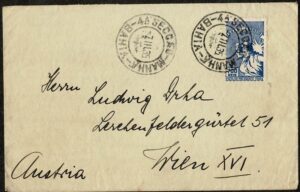 BAHIA - 4ª SECÇÃO - MANHÃ
BAHIA - 4ª SECÇÃO - MANHÃ
Herrn Ludwig Drha
Lerchenfeldergürtel 51
Wien XVI.
Austria